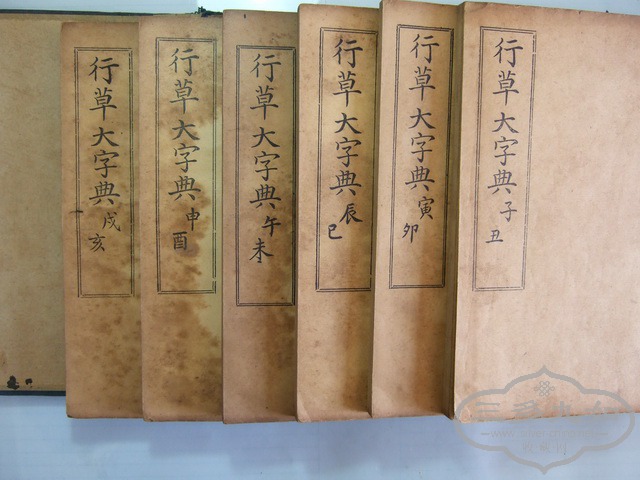 行草大字典 子
丑
行草大字典 寅
卯
行草大字典 辰
巳
行草大字典 午
未
行草大字典 申
酉
行草大字典 戌
亥